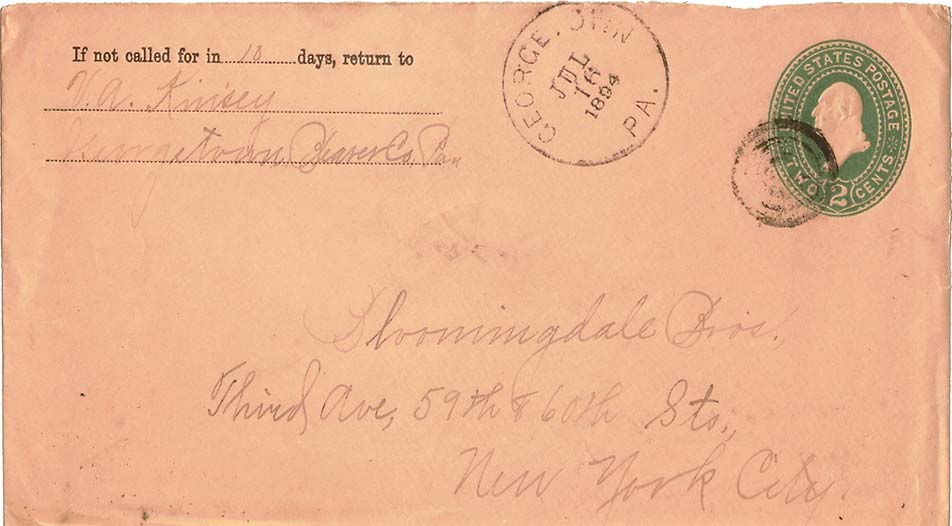 If not called for in 10 days, return to
V. A. Kinsey
Georgetown, Beaver Co, Pa
GEORGETOWN
JUL
16
1894
PA.
UNITED STATES POSTAGE
TWO 2 CENTS
Bloomingdale Bros.,
Third Ave, 59th & 60th Sts.,
New York City.